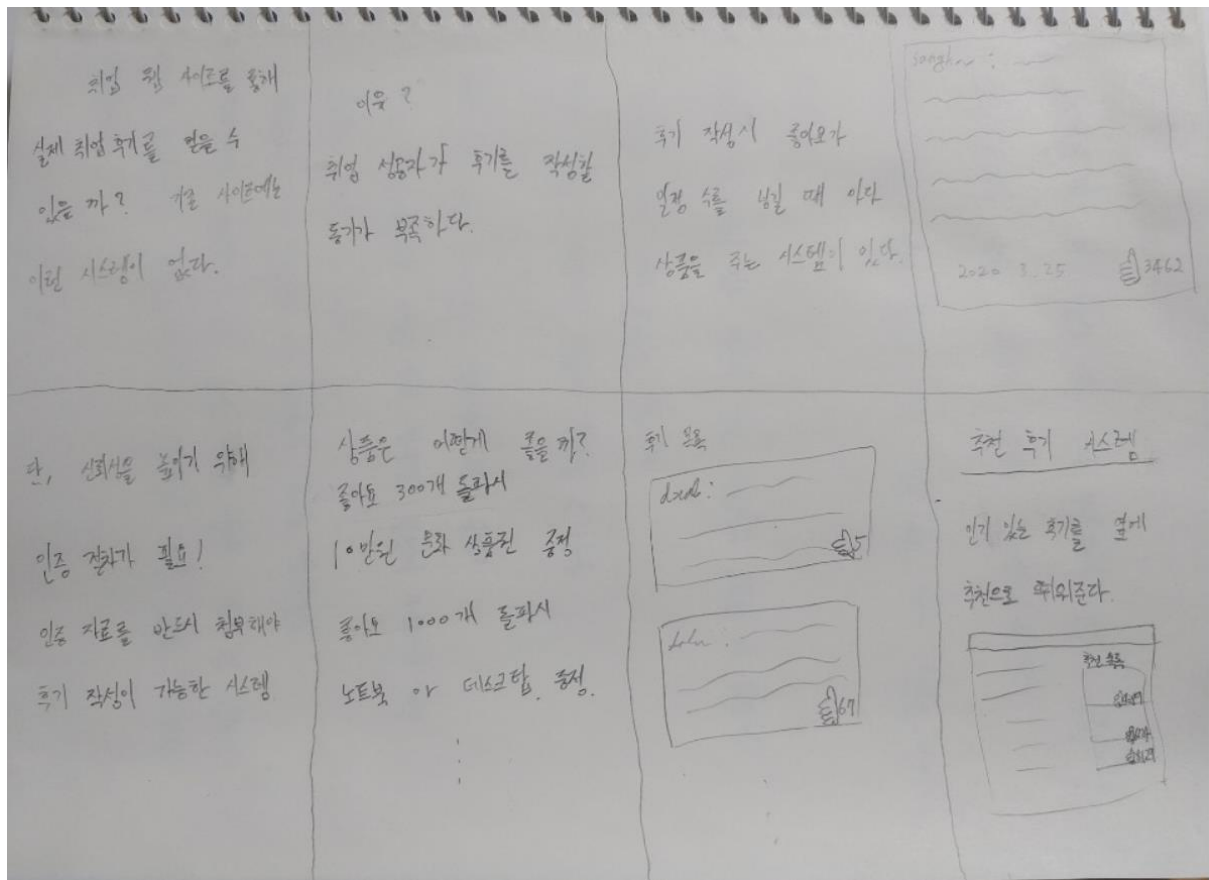 취업 웹 사이트를 통해
실제 취업 후기를 믿을 수
있을까? 기존 사이트에는
이런 시스템이 없다.
이유?
취업 성공자가 후기를 작성할
동기가 부족하다.
후기 작성시 좋아요가
일정 수를 넘길 때 마다
상품을 주는 시스템이 있다.
2020 8.25
3462
단, 신뢰성을 높이기 위해
인증 절차가 필요!
인증 자료를 반드시 첨부해야
후기 작성이 가능한 시스템
상품은 어떻게 줄을까?
좋아요 300개 돌파시
10만원 문화 상품권 증정
좋아요 1000개 돌파시
노트북 or 데스크탑 증정.
후기 목록
5
67
추천 후기 시스템
인기 있는 후기를 옆에
추천으로 띄워준다.
추천 목록